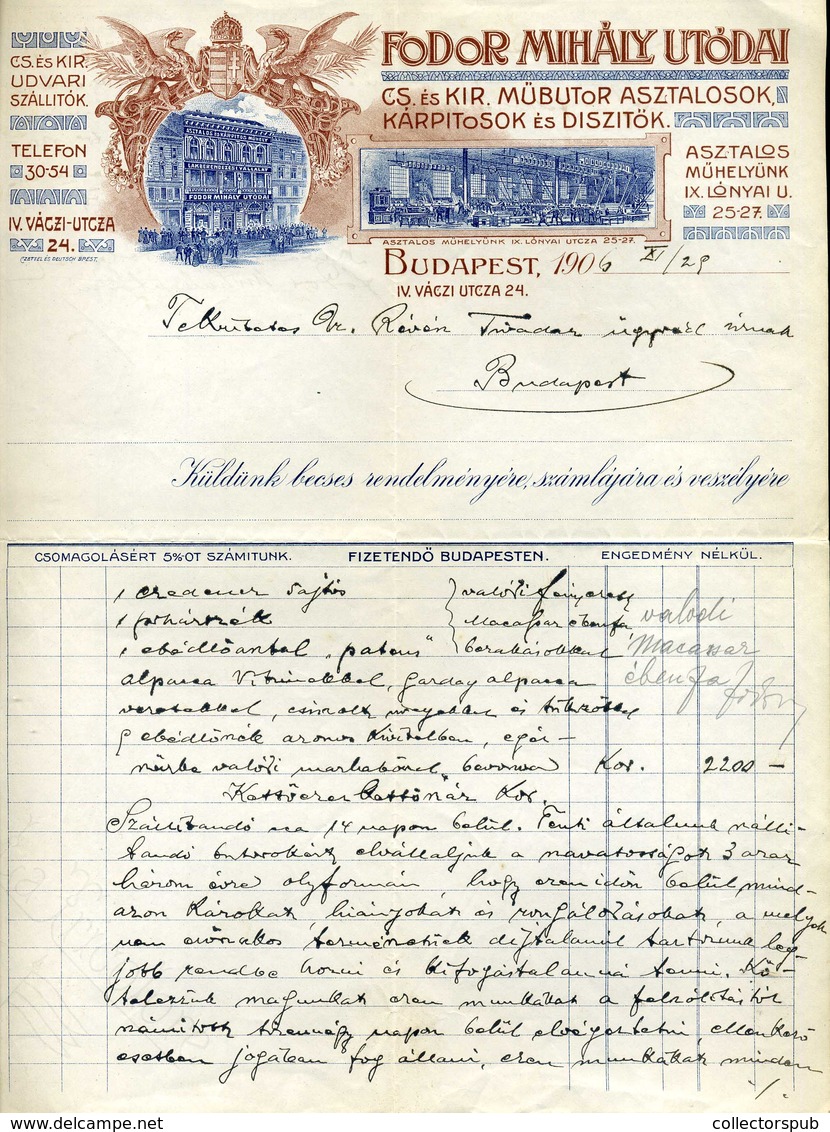 FODOR MIHÁLY UTÓDAI
CS. ÉS KIR. MŰBUTOR ASZTALOSOK,
KÁRPITOSOK ÉS DISZITŐK.
CS. ÉS KIR.
UDVARI
SZÁLLITÓK.
TELEFON
30-54
IV. VÁCZI-UTCZA
24.
CZETTEL ÉS DEUTSCH BPEST.
FODOR MIHÁLY UTÓDAI
ASZTALOS
MŰHELYÜNK
IX. LÓNYAI U.
25-27.
ASZTALOS MŰHELYÜNK IX. LÓNYAI UTCZA 25-27.
BUDAPEST, 1906 XI/29
IV. VÁCZI UTCZA 24.
Tekintetes Dr. Révész Tivadar ügyvéd úrnak
Budapest
Küldünk becses rendelményére, számlájára és veszélyére
CSOMAGOLÁSÉRT 5%-OT SZÁMITUNK. FIZETENDŐ BUDAPESTEN. ENGEDMÉNY NÉLKÜL.
1 credencz valódi
1 pohárszék Macassar ébenfa
1 ebédlőasztal "patens" berakásokkal
valódi
Macassar
ébenfa
Fodor
alpacca Vitrinekkel, alpacca
veretekkel, csiszolt üvegekkel és tükrökkel
ebédlőszék azonos kivitelben,
valódi marhabőrrel bevonva Kor. 2200 —
Kettőezerkettőszáz Kor.
Szállitandó 14 napon belül. Fenti általunk szálli-
tandó butorokért elvállaljuk a szavatosságot 3 azaz
három évre olyformán, hogy ezen időn belül mind-
azon károkat, hiányokat és rongálódásokat, a melyek
nem erőszakos természetüek díjtalanul tartozunk leg-
jobb rendbe hozni és kifogástalanná tenni. Kö-
telezzük magunkat ezen munkákat a felszólitástól
számitott tizennégy napon belül elvégeztetni, ellenkező
esetben jogában fog állani, ezen munkákat minden
./.
collectorspub